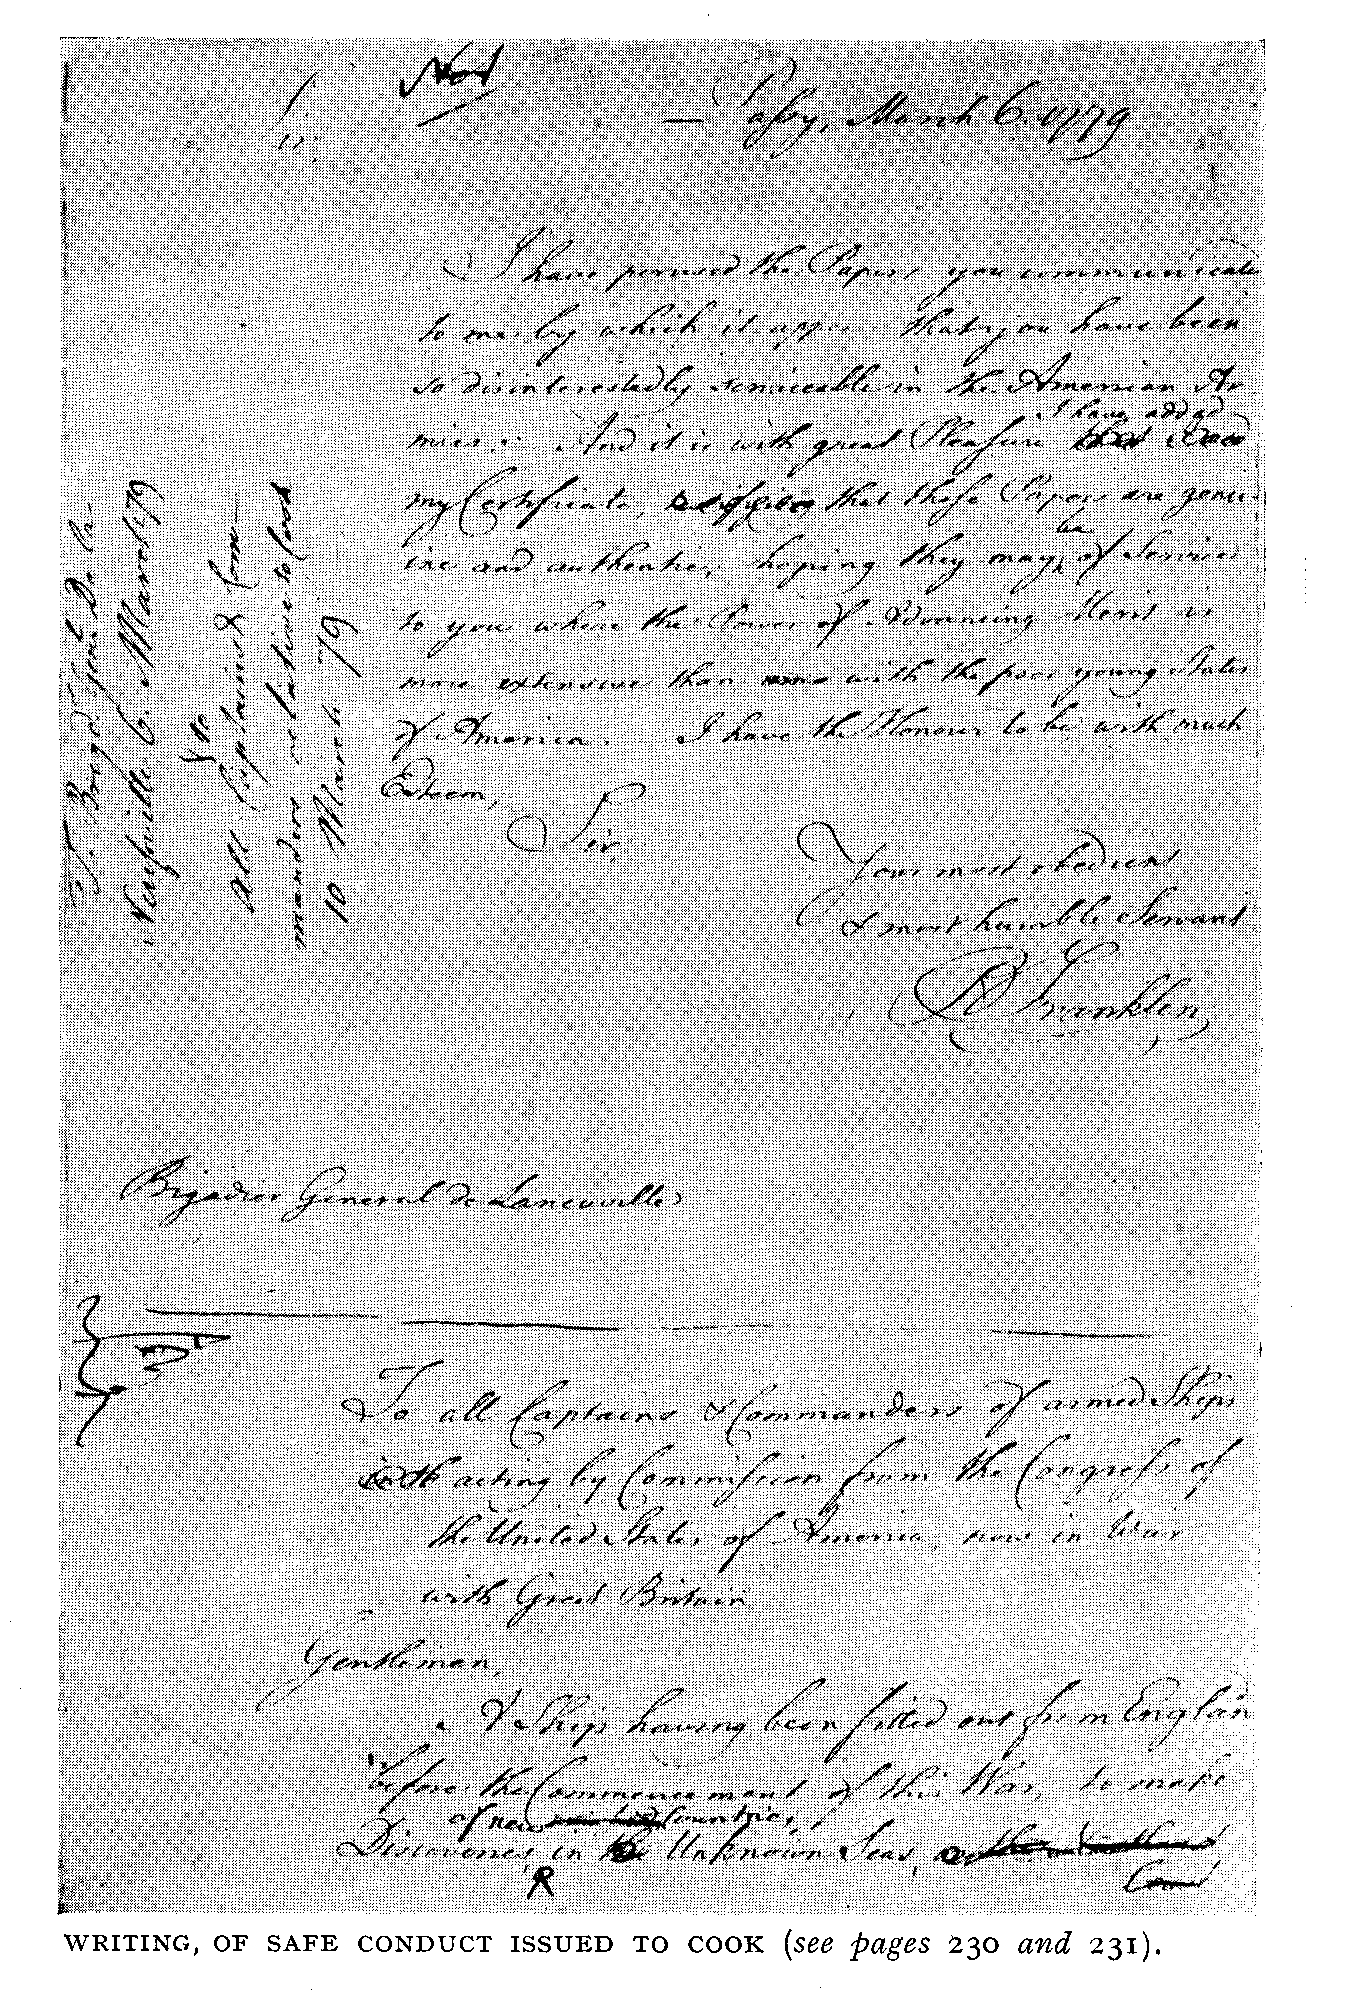 No 1
Passy, March 6. 1779
I have perused the Papers you communicate
to me by which it appears that you have been
so disinterestedly serviceable in the American Ar
I have added
mies: And it is with great Pleasure
my Certificate, that those Papers are genu
be
ine and authentic, hoping they may of Service
to you where the Power of Advancing Merit is
more extensive than with the poor young States
of America. I have the Honour to be with much
Esteem,
Sir,
Your most obedient
& most humble Servant
B Franklin
To Brigd. Genl. De la
Neuville 6. March 79
To
All Captains & Com
manders relative to Cook
10 March 79
Brigadier General de Laneuville
To all Captains & Commanders of armed Ships
acting by Commission from the Congress of
the United States of America, now in War
with Great Britain
Gentlemen,
A Ship having been fitted out from Englan
before the Commencement of this War, to make
of new Countries,
Discoveries in Unknown Seas,
WRITING, OF SAFE CONDUCT ISSUED TO COOK (see pages 230 and 231).